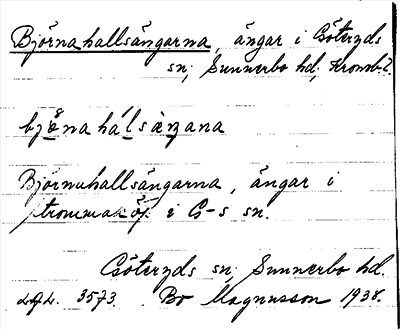 Björnahallsängarna, ängar i Göteryds
sn, Sunnerbo hd, Kronob. l.
bjö̊na hálsàŋana
Björnahallsängarna, ängar i
i G-s sn.
Göteryds sn, Sunnerbo hd.
3573. Bo Magnusson 1938.